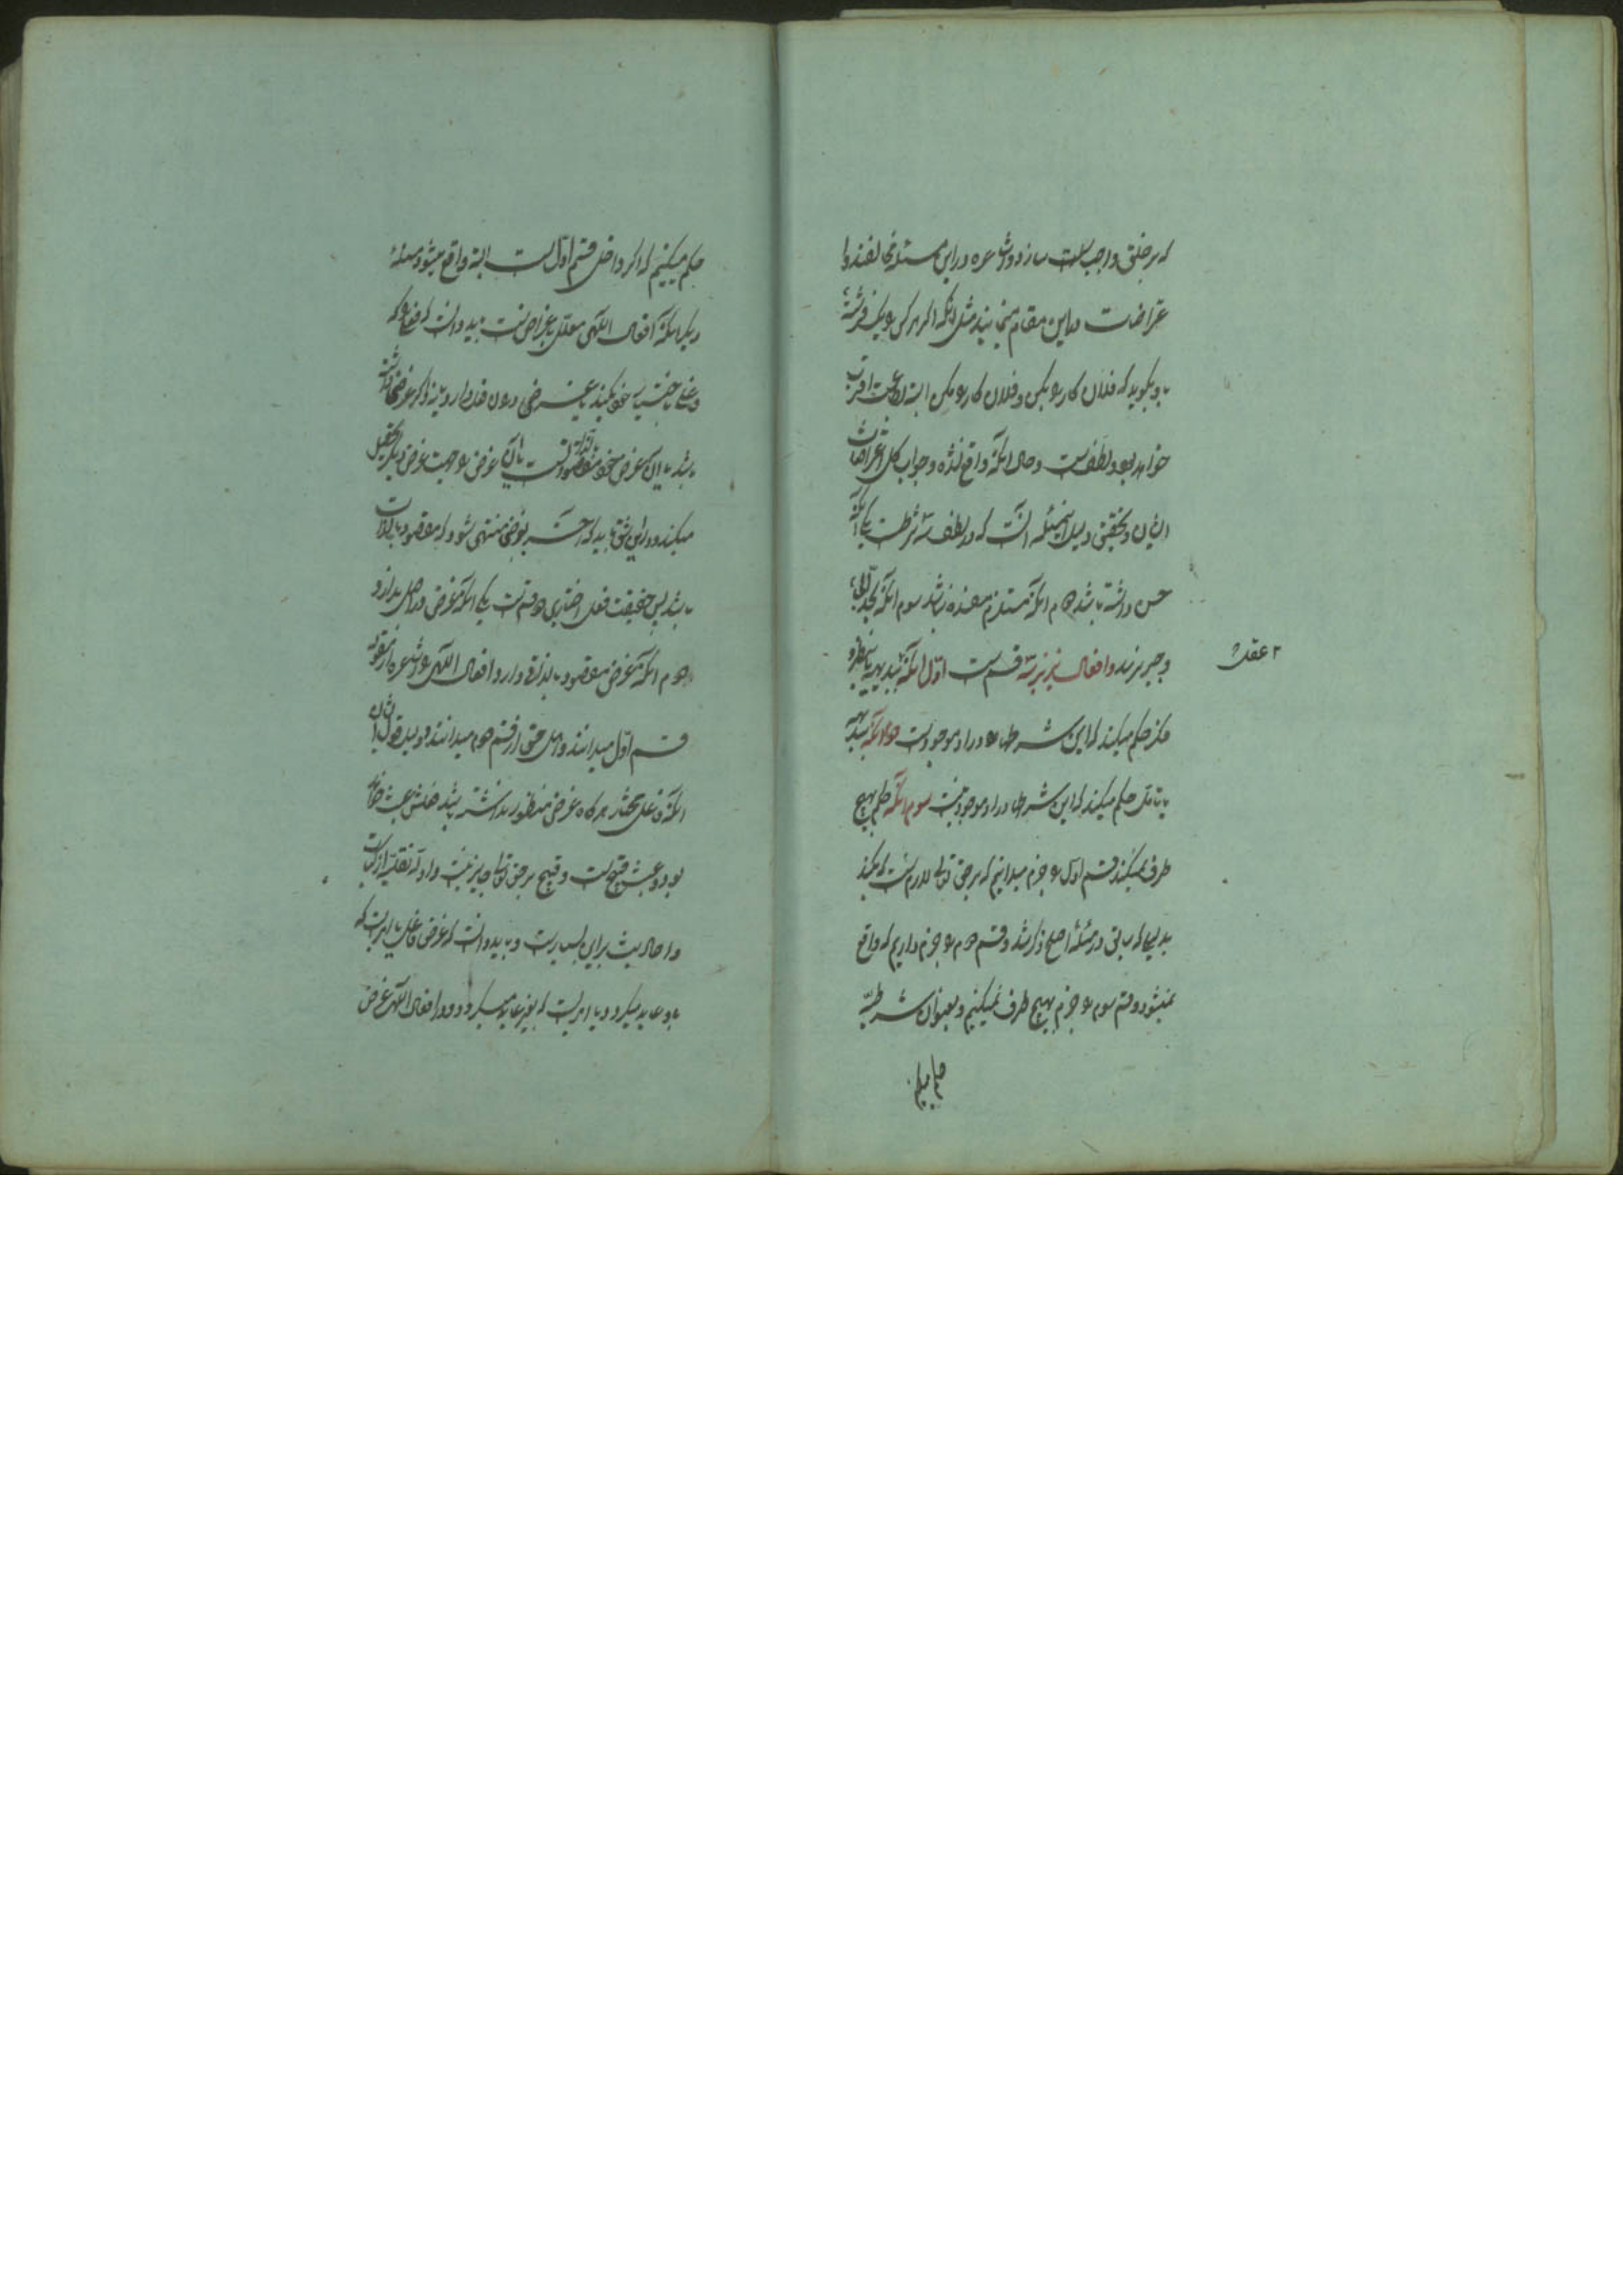 که بر خلق واجبست سازد و اشاعره در این مسئله مخالفند و ا
عتراضات در این مقام مینمایند مثل آنکه اگر هر کس را یک فرشته
باو بگوید که فلان کار را بکن و فلان کار را مکن البته بطاعت اقرب
خواهد بود و لطفست و حال آنکه واقع نشده و جواب کل اعتراضات
ایشان و تحقیق دلیل این مسئله آنست که در لطف سه شرطست یکی آنکه
حسن داشته باشد دوم آنکه مستلزم مفسده نباشد سوم آنکه بحد الجاء
و جبر نرسد و افعال نیز بر سه قسم است اول آنکه ببدیهه یا بنظر و
۲ عقل
فکر حکم میکند که این شرطها در او موجود است دوم آنکه ببدیهه
یا بتأمل حکم میکند که این شرطها در او موجود نیست سوم آنکه حکم بهیچ
طرف نمیکند قسم اول را جزم میدانیم که بر حق تعالی لازم است که بکند
بدلیلی که سابق در مسئلهٔ اصلح ذکر شد و قسم دوم را جزم داریم که واقع
نمیشود و قسم سوم را جزم بهیچ طرف نمیکنیم و بعنوان شرطیه
حکم میکنیم
حکم میکنیم که اگر داخل قسم اول است البته واقع میشود مسئلهٔ
دیگر آنکه افعال الهی معلل باغراض است بباید دانست که فعلی را که
فاعلی باختیار خود میکند یا غرضی در آن فعل دارد یا نه و اگر غرضی داشته
باشد یا آن غرض خود مقصود بالذاتست یا آن غرض را جهت غرض دیگر تحصیل
میکند و در این شق باید که آخر بغرضی منتهی شود که مقصود بالذات
باشد پس حقیقت فعل اختیاری دو قسم است یکی آنکه غرض در اصل ندارد و
دوم آنکه غرض مقصود بالذات دارد و افعال الهی را اشاعره از مقوله
قسم اول میدانند و اهل حق از قسم دوم میدانند و دلیل قول ایشان
آنکه فاعل مختار هرگاه غرض منظور نداشته باشد فعلش عبث خواهد
بود و عبث قبیح است و قبیح بر حق تعالی جایز نیست و ادلهٔ نقلیه از آیات
و احادیث بر این بسیار است و بباید دانست که غرض فاعل یا امریست که
باو عاید میگردد و یا امریست که بغیر عاید میگردد و در افعال الهی غرض